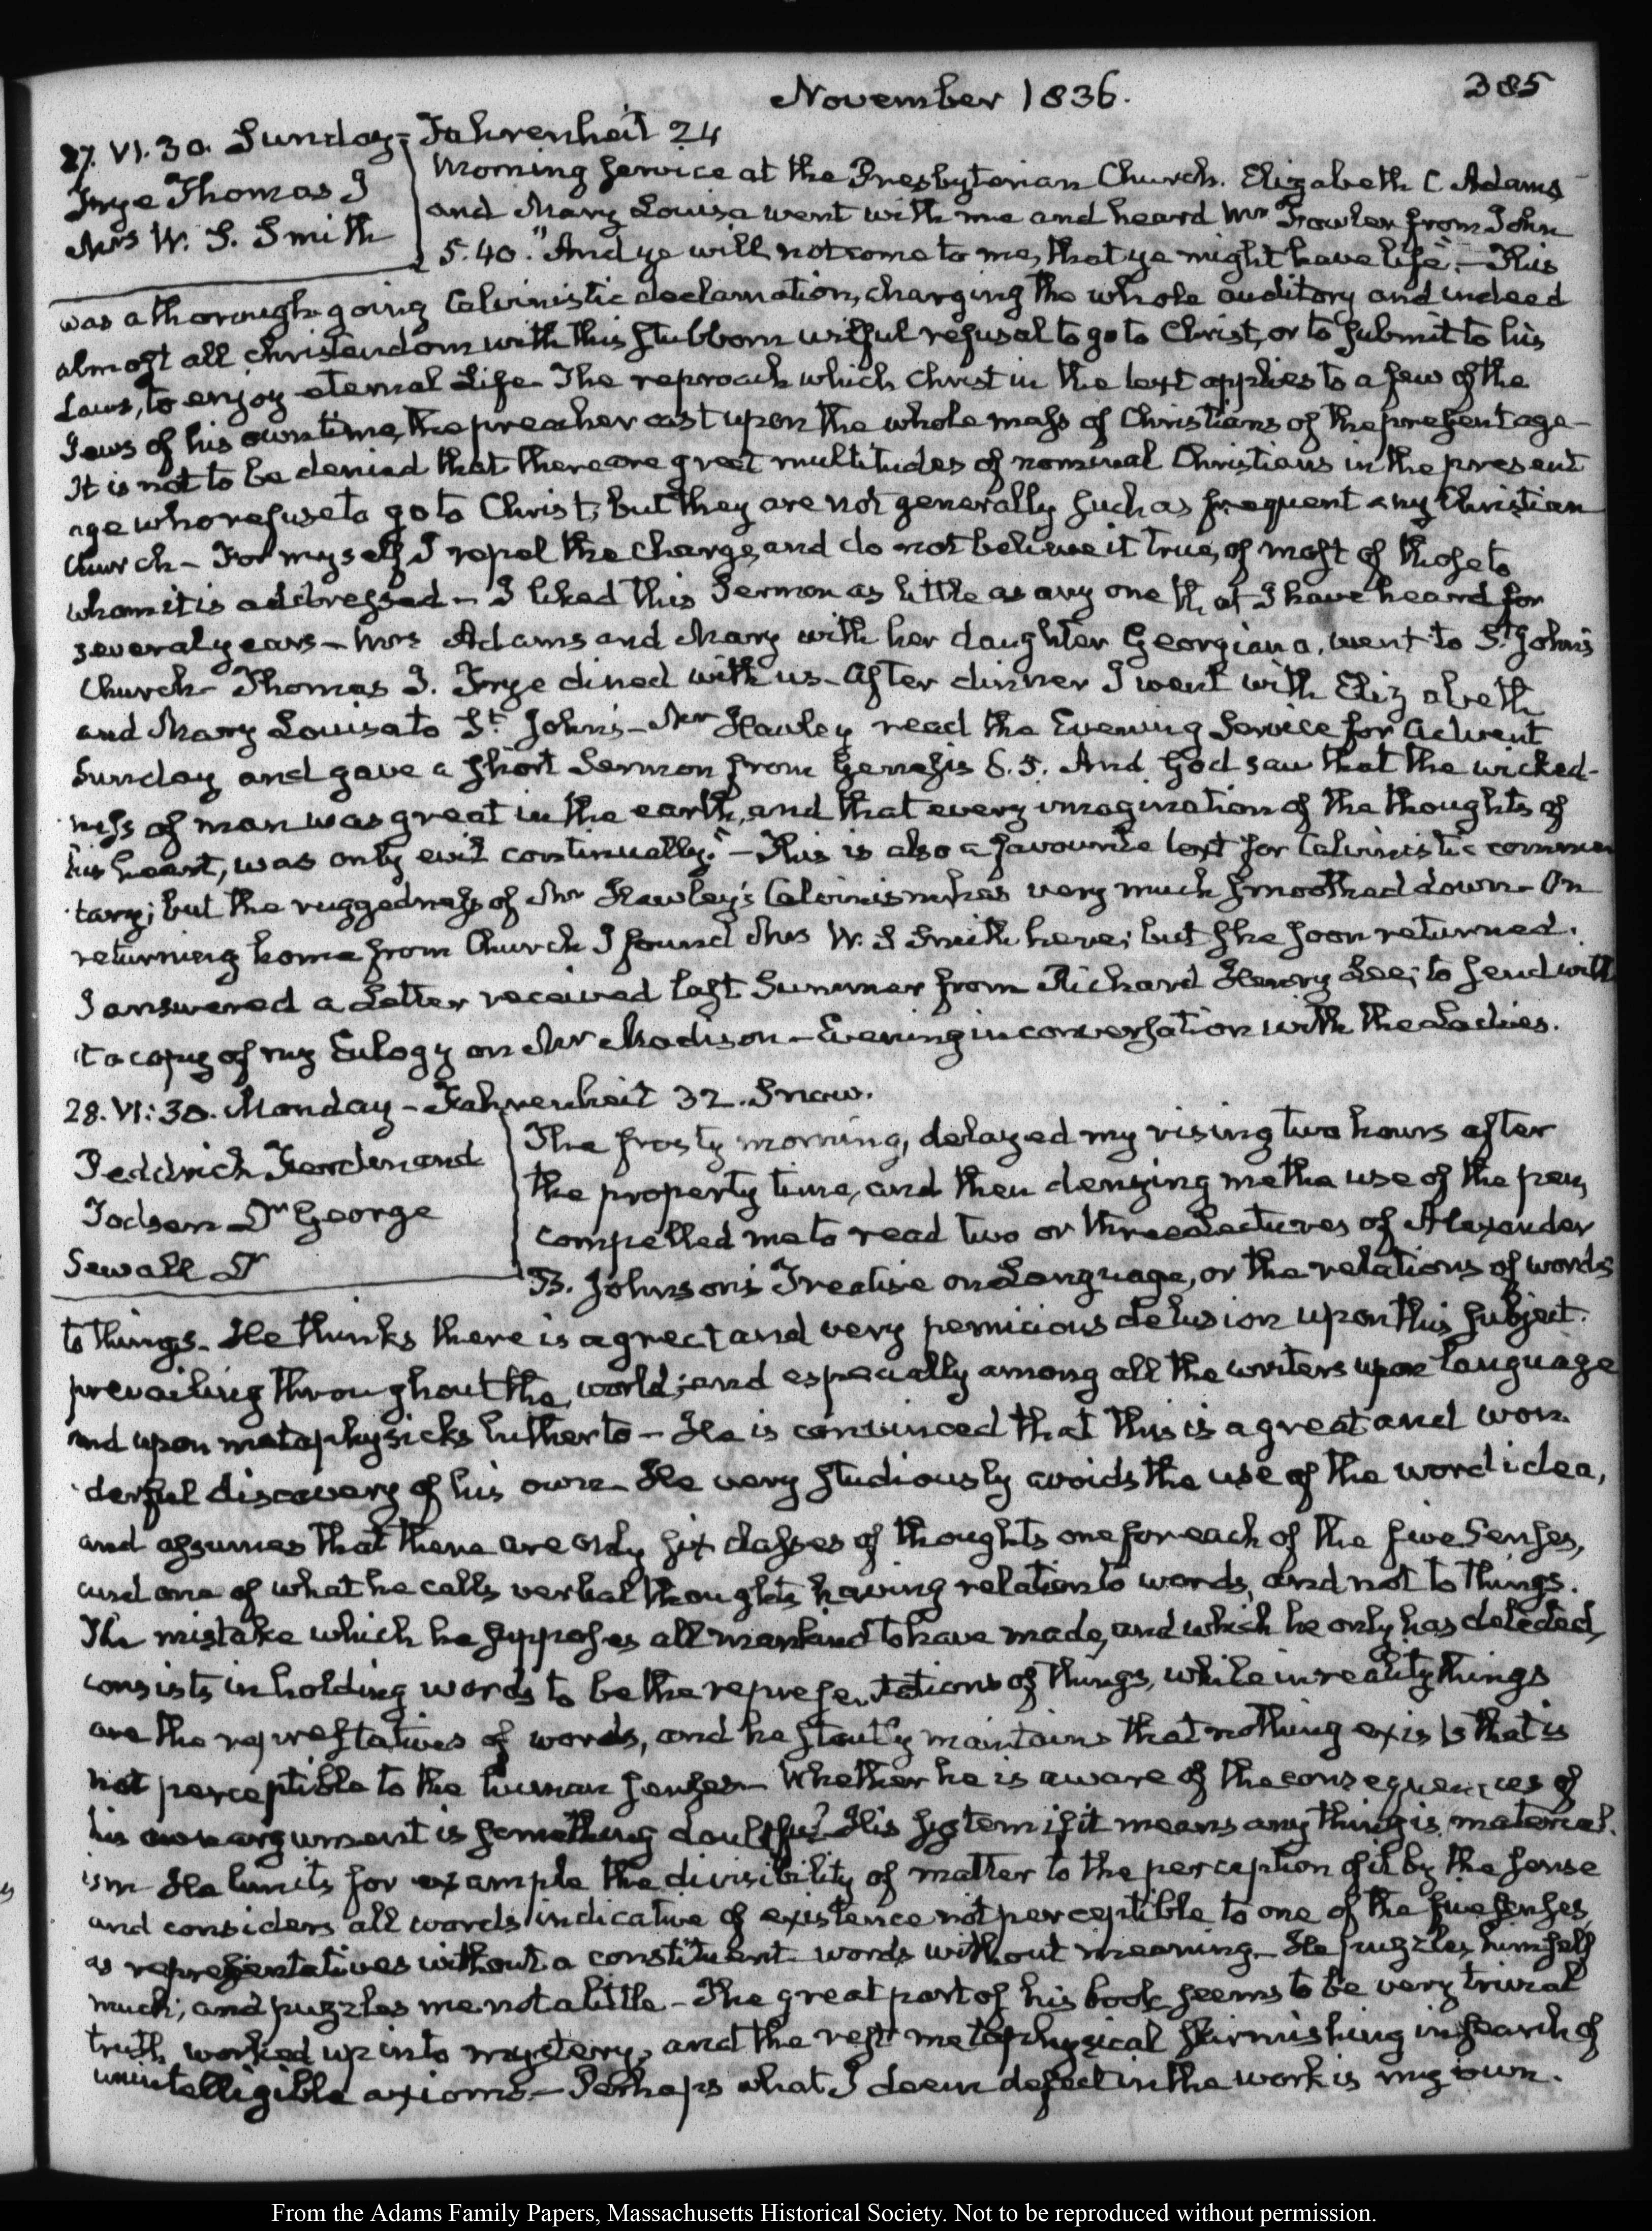 November 1836.
385
27. VI.30. Sunday. Fahrenheit 24
Frye Thomas J
Mrs W. S. Smith
Morning service at the Presbyterian Church. Elizabeth C Adams
and Mary Louisa went with me and heard Mr Fowler from John
5.40. "And ye will not come to me, that ye might have life". This
was a thorough going Calvinistic declamation, charging the whole auditory and indeed
almost all christendom with this stubborn wilful refusal to go to Christ, or to submit to his
Laws, to enjoy eternal Life. The reproach which Christ in the text applies to a few of the
Jews of his own time, the preacher cast upon the whole mass of Christians of the present age-
It is not to be denied that there are great multitudes of nominal Christians in the present
age who refuse to go to Christ, but they are not generally such as frequent any Christian
Church - For myself I repel the charge, and do not believe it true, of most of those to
whom it is addressed - I liked this Sermon as little as any one that I have heard for
several years - Mrs Adams and Mary with her daughter Georgiana, went to St John's
Church - Thomas J. Frye dined with us - After dinner I went with Elizabeth
and Mary Louisa to St John's - Mr Hawley read the Evening Service for Advent
Sunday and gave a short Sermon from Genesis 6.5. And God saw that the wicked-
ness of man was great in the earth, and that every imagination of the thoughts of
his heart, was only evil continually." - This is also a favourite text for Calvinistic commen
tary; but the ruggedness of Mr Hawley's Calvinism has very much smoothed down - On
returning home from Church I found Mrs W. S Smith here; but she soon returned.
I answered a Letter received last Summer from Richard Henry Lee; to send with
it a copy of my Eulogy on Mr Madison - Evening in conversation with the Ladies.
28. VI:30. Monday - Fahrenheit 32. Snow.
Peddrich Ferdinand
Todsen Dr George
Sewall Dr
The frosty morning, delayed my rising two hours after
the property time, and then denying me the use of the pen,
compelled me to read two or three Lectures of Alexander
B. Johnson's Treatise on Language, or the relations of words
to things. He thinks there is a great and very pernicious delusion upon this subject
prevailing throughout the world; and especially among all the writers upon language
and upon metaphysicks hitherto - He is convinced that this is a great and won
derful discovery of his own - He very studiously avoids the use of the word idea,
and assumes that there are only six classes of thoughts one for each of the five Senses,
and one of what he calls verbal thoughts having relation to words, and not to things.
The mistake which he supposes all mankind to have made, and which he only has detected,
consists in holding words to be the representations of things, while in reality things
are the represtatives of words, and he stoutly maintains that nothing exists that is
not perceptible to the human senses - Whether he is aware of the consequences of
his own argument is something doubtful. His system if it means any thing is material.
ism He limits for example the divisibility of matter to the perception of it by the sense
and considers all words indicative of existence not perceptible to one of the five senses,
as representatives without a constituent - words without meaning - He puzzles himself
much; and puzzles me not a little - The great part of his book seems to be very trivial
truth, worked up into mystery, and the rest metaphysical skirmishing in search of
unintelligible axioms. - Perhaps what I deem defect in the work is my own.
From the Adams Family Papers, Massachusetts Historical Society. Not to be reproduced without permission.